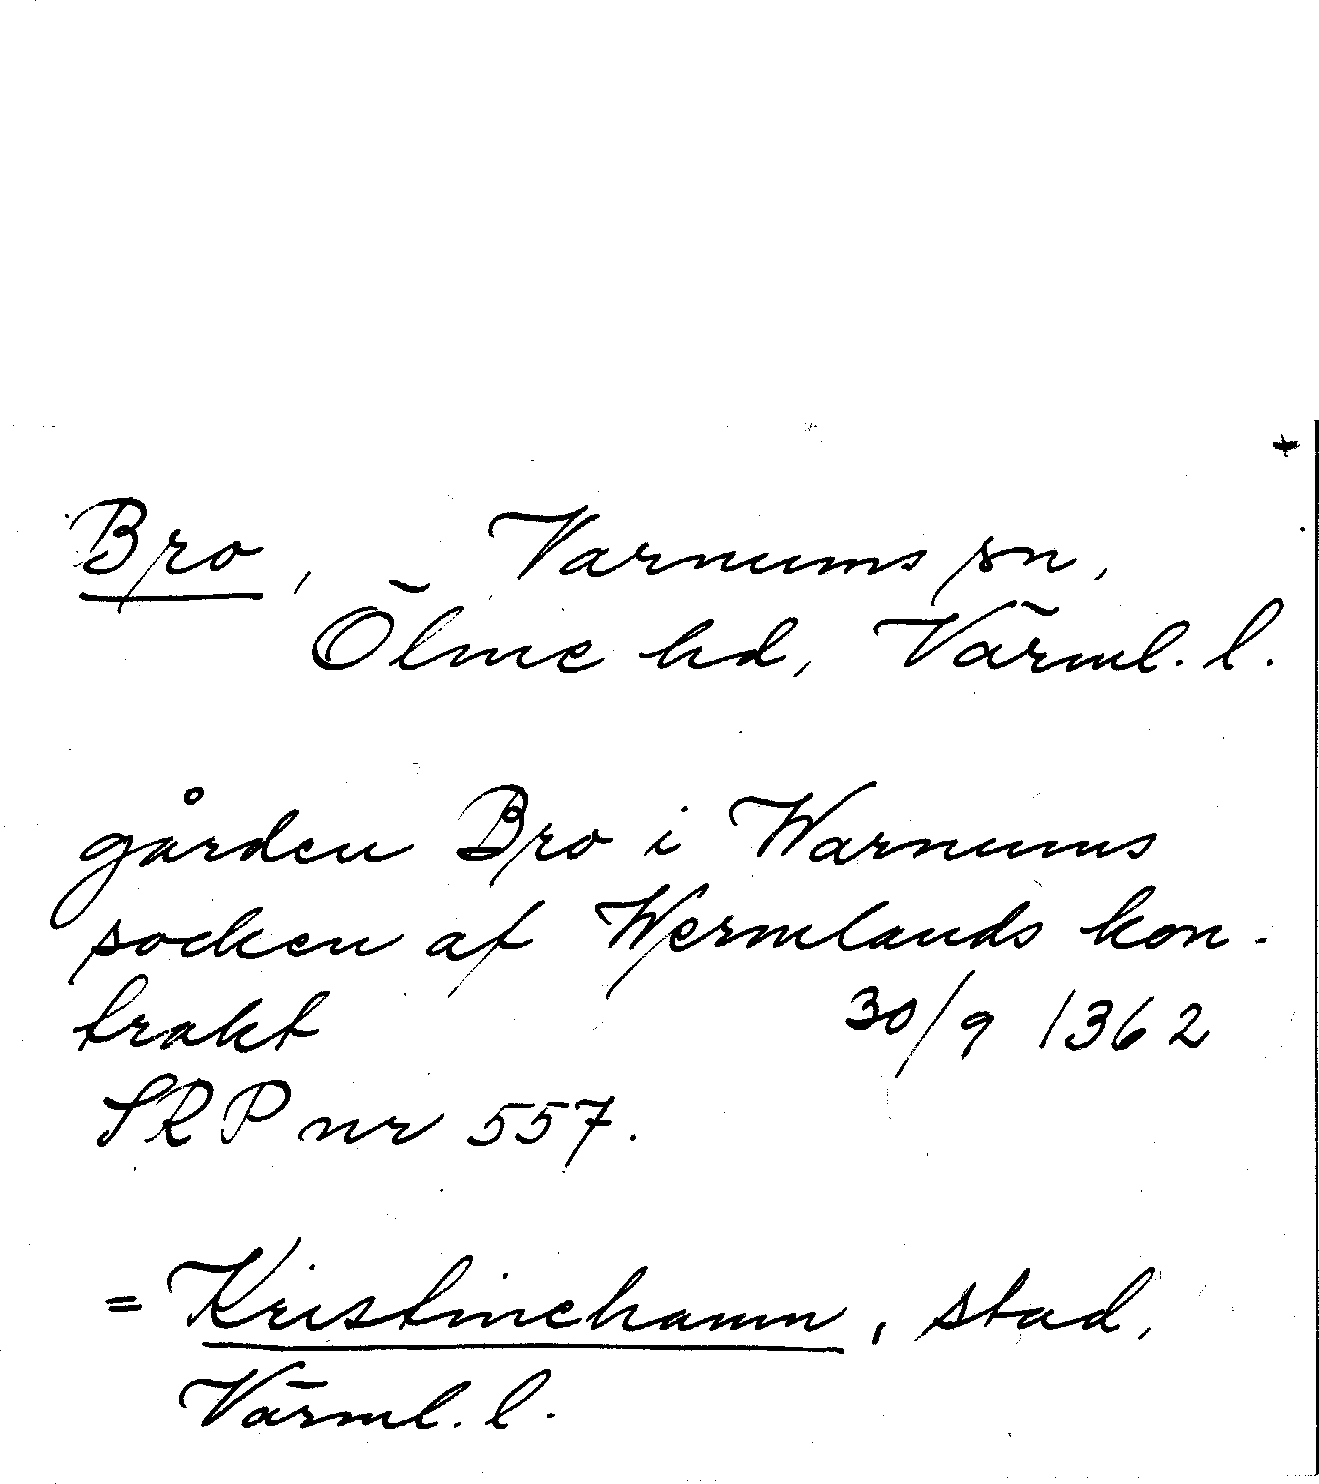 Bro, Varnums sn,
Ölme hd, Värml. l.
gården Bro i Warnums
socken af Wermlands kon-
trakt 30/9 1362
SRP nr 557.
= Kristinehamn, stad,
Värml. l.